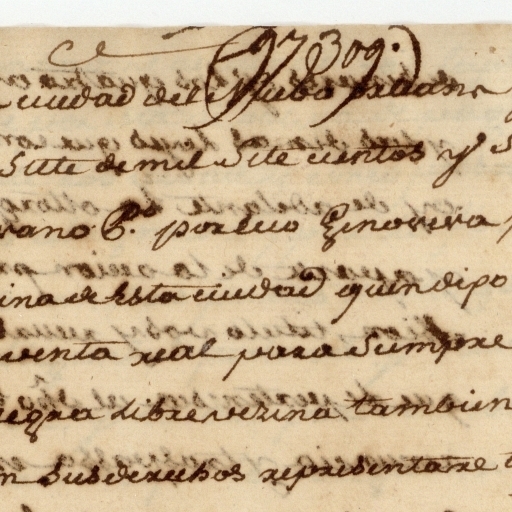 97309.
ciudad del Nuebo orleans
Siete de mil Sete cientos y S
vano Pco. parecio Genoveva
ina de Esta ciudad quien dipo
venta real para Sempre
egra libre vezina tambien
n Susderechos representare